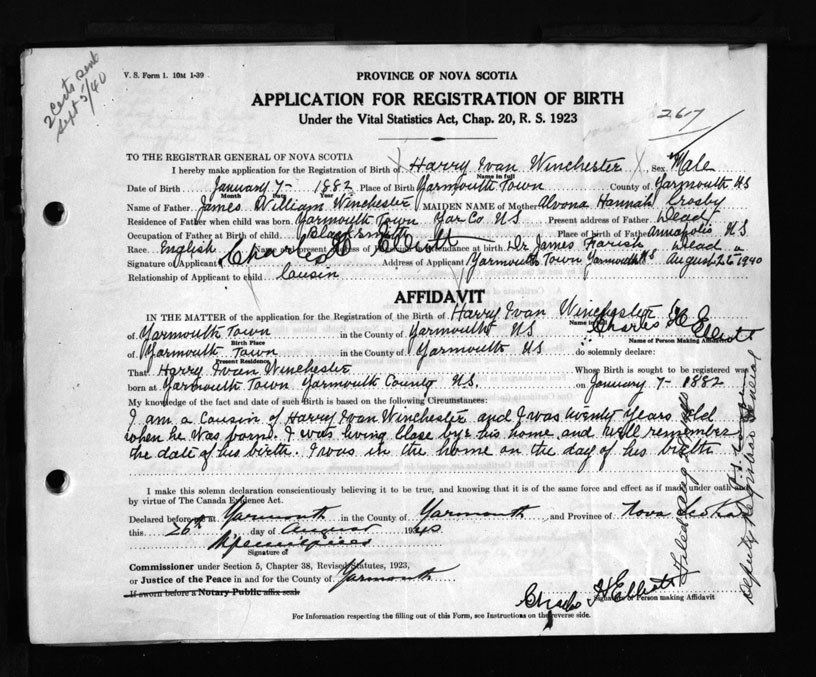 2 Certs sent
Sept 5/40
V. S. Form 1. 10M 1-39
PROVINCE OF NOVA SCOTIA
APPLICATION FOR REGISTRATION OF BIRTH
267
Under the Vital Statistics Act, Chap. 20, R. S. 1923
TO THE REGISTRAR GENERAL OF NOVA SCOTIA
I hereby make application for the Registration of Birth of Harry Ivan Winchester Sex Male
Name in full
Date of Birth January 7- 1882 Place of Birth Yarmouth Town County of Yarmouth NS
Month Date Year
Name of Father James William Winchester MAIDEN NAME of Mother Hannah Crosby
Residence of Father when child was born Yarmouth Town Yar Co NS Present address of Father Dead
Occupation of Father at Birth of child Blacksmith Place of birth of Father Annapolis NS
Race English Name and present address of in attendance at birth Dr James Farish Dead
Signature of Applicant Charles H Elliott Address of Applicant Yarmouth Town Yarmouth NS August 26 1940
Relationship of Applicant to child Cousin
AFFIDAVIT
IN THE MATTER of the application for the Registration of the Birth of Harry Ivan Winchester
Name in
of Yarmouth Town in the County of Yarmouth NS Charles H Elliott
Birth Place Name of Person Making Affidavit
of Yarmouth Town in the County of Yarmouth NS do solemnly declare:
Present Residence
That Harry Ivan Winchester Whose Birth is sought to be registered was
born at Yarmouth Town Yarmouth County N.S. on January 7- 1882
My knowledge of the fact and date of such Birth is based on the following Circumstances:
I am a Cousin of Harry Ivan Winchester and I was twenty years old
when he was born. I was living close bye his home and well remember
the date of his birth. I was in the home on the day of his birth
I make this solemn declaration conscientiously believing it to be true, and knowing that it is of the same force and effect as if made under oath and
by virtue of The Canada Evidence Act.
Declared before me at Yarmouth in the County of Yarmouth and Province of Nova Scotia
this 26th day of August 1940
Signature of
Commissioner under Section 5, Chapter 38, Revised Statutes, 1923,
or Justice of the Peace in and for the County of Yarmouth
If sworn before a Notary Public affix seal
Chas H Elliott
Signature of Person making Affidavit
For Information respecting the filling out of this Form, see Instructions on the reverse side.
Filed Aug
Deputy Registrar General